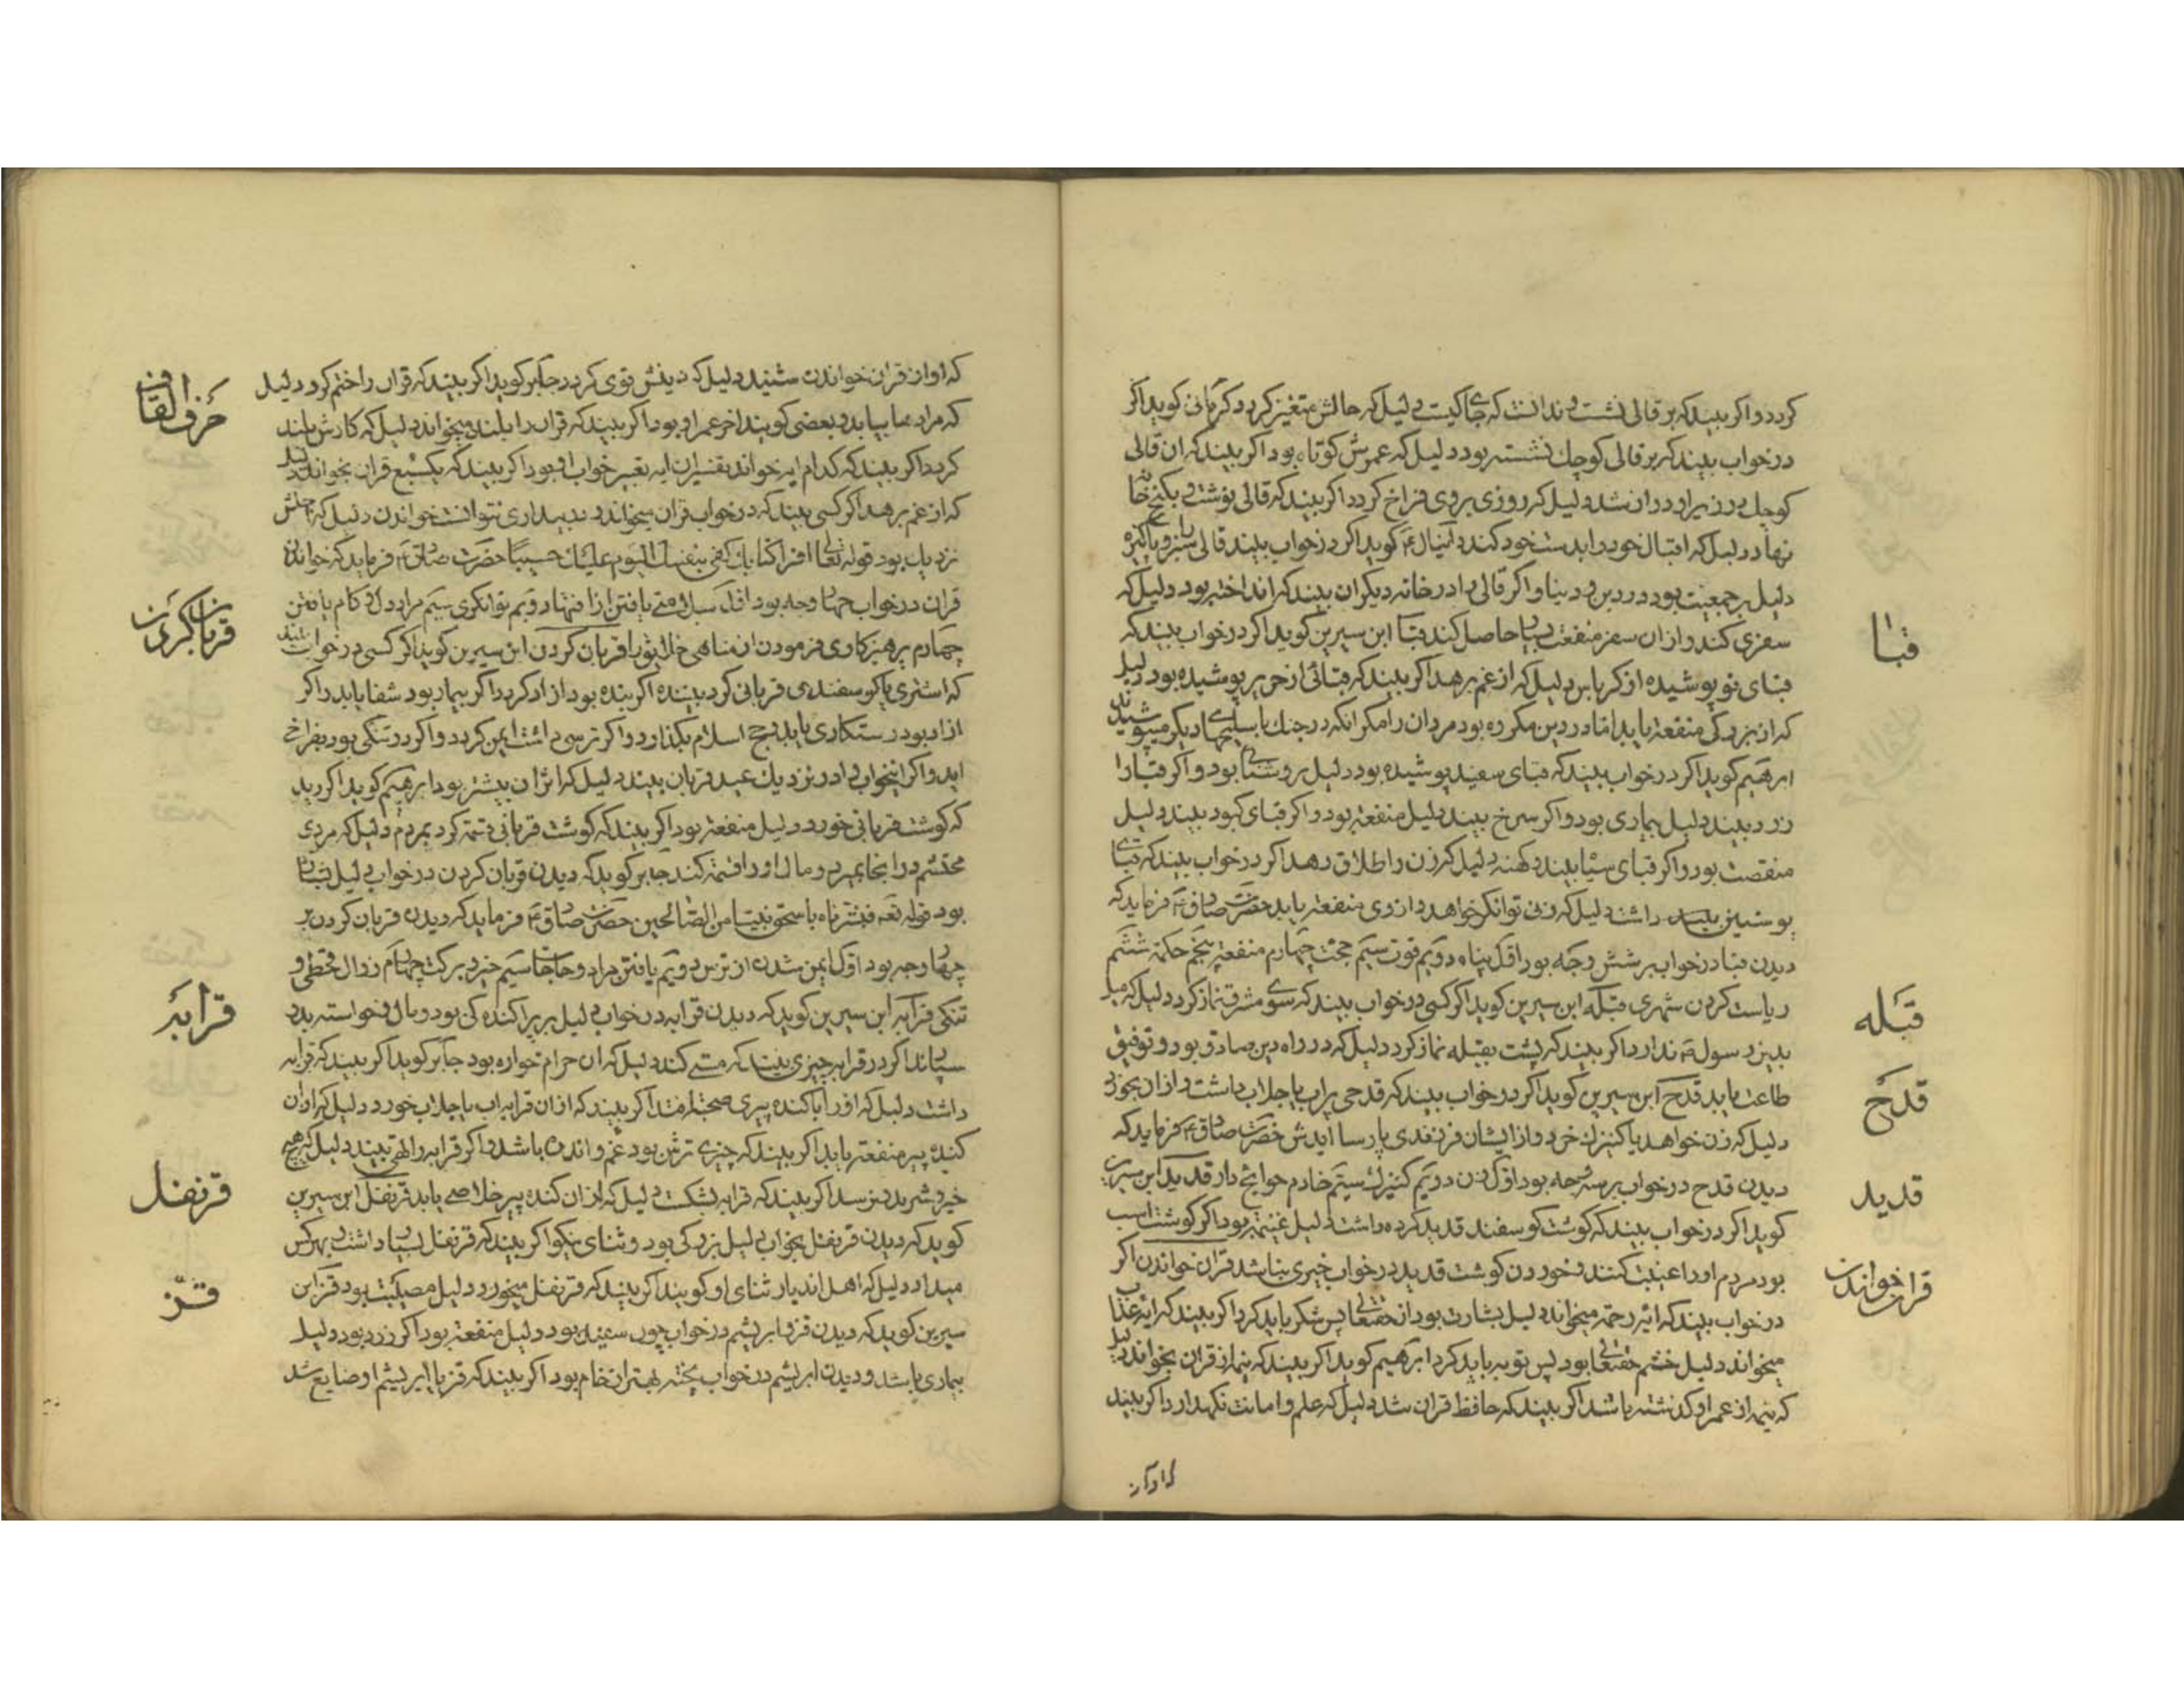 کردد واکر بیند که بر قالی نشست و ندانست که جای کیست دلیل که حالش متغیر کردد کرمانی کوید اکر
درخواب بیند که بر قالی کوچک نشسته بود دلیل که عمرش کوتاه بود اکر بیند که ان قالی
کوچک در زیر او دراز شد دلیل که روزی بر وی فراخ کردد اکر بیند که قالی نوشت و بکنج خانه
نهاد دلیل که اقبال خود را بدست خود کند دانیال ع کوید اکر درخواب بیند قالی سبز و پاکیزه
دلیل بر جمعیت بود در دین و دنیا واکر قالی را در خانه دیکران بیند که انداخته بود دلیل که
سفری کند و از ان سفر منفعت بسیار حاصل کند قبا ابن سیرین کوید اکر درخواب بیند که
قبا
قبای نو پوشیده از کرباس دلیل که از غم برهد اکر بیند که قبائی از حریر پوشیده بود دلیل
که از بزرکی منفعة یابد اما در دین مکروه بود مردان را مکر انکه در جنک با سلیحهای دیکر میپوشیدند
ابرهیم کوید اکر درخواب بیند که قبای سفید پوشیده بود دلیل بر روشنائی بود و اکر قبا را
زرد بیند دلیل بیماری بود و اکر سرخ بیند دلیل منفعة بود و اکر قبای کبود بیند دلیل
منقصت بود و اکر قبای سیاه بیند و کهنه دلیل که زن را طلاق دهد اکر درخواب بیند که قبای
پوستین داشت دلیل که زنی توانکر خواهد و از وی منفعة یابد حضرت صادق ع فرماید که
دیدن قبا درخواب بر شش وجه بود اوّل پناه دویم قوت سیم حجت چهارم منفعة پنجم حکمة ششم
ریاست کردن شهری قبله ابن سیرین کوید اکر کسی درخواب بیند که سوی مشرق نماز کرد دلیل که میل
قبله
بدین رسول ندارد اکر بیند که پشت بقبله نماز کرد دلیل که در راه دین صادق بود و توفیق
طاعت یابد قدح ابن سیرین کوید اکر درخواب بیند که قدحی پر اب یا جلاب داشت و از ان بخورد
قدح
دلیل که زن خواهد یا کنیزک خرد و از ایشان فرزندی پارسا ایدش حضرت صادق ع فرماید که
دیدن قدح درخواب بر سه وجه بود اوّل زن دویم کنیزک سیّم خادم حوایج دار قدید ابن سیرین
قدید
کوید اکر درخواب بیند که کوشت کوسفند قدید کرده داشت دلیل غنیمة بود اکر کوشت اسب
بود مردم او را غیبت کنند و خوردن کوشت قدید درخواب خیری نباشد قران خواندن اکر
قران خواندن
درخواب بیند که ائیه رحمة میخواند دلیل بشارت بود از حقتعالی پس شکر باید کرد اکر بیند که ایه عذاب
میخواند دلیل خشم حقتعالی بود پس توبه باید کرد ابرهیم کوید اکر بیند که نیمه از قران بخواند دلیل
که نیمه از عمر او کذشته باشد اکر بیند که حافظ قران شد دلیل که علم و امانت نکهدارد اکر بیند
که اواز
که اواز قران خواندن شنید دلیل که دینش قوی کردد جابر کوید اکر بیند که قران را ختم کرد دلیل
حرف القاف
که مرادها بیابد و بعضی کویند اخر عمر او بود اکر بیند که قران را بلند میخواند دلیل که کارش بلند
کردد اکر بیند که کدام ایه خواند تفسیر ان ایه تعبیر خواب او بود اکر بیند که یک سبع قران بخواند دلیل
که از غم برهد اکر کسی بیند که درخواب قران میخواند و ببیداری نتوانست خواندن دلیل که اجلش
نزدیک بود قوله تعالی اقرا کتابک کفی بنفسک الیوم علیک حسیبا حضرت صادق ع فرماید که خواندن
قران درخواب چهار وجه بود اوّل سلامتی یافتن از افتها دویم توانکری سیّم مراد دل و کام یافتن
چهارم پرهیزکاری فرمودن از مناهی خلایق را قربان کردن ابن سیرین کوید اکر کسی درخواب بیند
قربان کردن
که اشتری یا کوسفندی قربانی کرد بیننده اکر بنده بود ازاد کردد اکر بیمار بود شفا یابد و اکر
ازاد بود رستکاری یابد حج اسلام بکذارد و اکر ترسی داشت ایمن کردد و اکر در تنکی بود بفراخی
اید و اکر اینخواب را در نزدیک عید قربان بیند دلیل که اثر ان بیشتر بود ابرهیم کوید اکر دید
که کوشت قربانی خورد دلیل منفعة بود اکر بیند که کوشت قربانی قسمة کرد بمردم دلیل که مردی
محتشم در انجا بمیرد و مال او را قسمة کنند جابر کوید که دیدن قربان کردن درخواب دلیل بشارت
بود قوله تعه فبشرناه باسحق نبیّا من الصّالحین حضرت صادق ع فرماید که دیدن قربان کردن بر
چهار وجه بود اوّل ایمن شدن از ترس دویم یافتن مراد و حاجتها سیم خیر و برکت چهارم زوال قحطی و
تنکی قرابه ابن سیرین کوید که دیدن قرابه درخواب دلیل بر پراکنده کی بود و مال و خواسته بدو
قرابه
سپارند اکر در قرابه چیزی بیند که مستی کند دلیل که ان حرام خواره بود جابر کوید اکر بیند که قرابه
داشت دلیل که او را با کنده پیری صحبت افتد اکر بیند که از ان قرابه اب یا جلاب خورد دلیل که از ان
کنده پیر منفعة یابد اکر بیند که چیزی ترش بود غم و اندوه باشد و اکر قرابه را تهی بیند دلیل که هیچ
خیر و شر بدو نرسد اکر بیند که قرابه بشکست دلیل که از ان کنده پیر خلاصی یابد قرنفل ابن سیرین
قرنفل
کوید که دیدن قرنفل بخواب دلیل بزرکی بود و ثنای نیکو اکر بیند که قرنفل بسیار داشت و بهر کس
میداد دلیل که اهل ان دیار ثنای او کویند اکر بیند که قرنفل میخورد دلیل مصیبت بود قز ابن
قز
سیرین کوید که دیدن قز و ابریشم درخواب چون سفید بود دلیل منفعة بود اکر زرد بود دلیل
بیماری باشد و دیدن ابریشم درخواب پخته بهتر از خام بود اکر بیند که قز یا ابریشم او ضایع شد